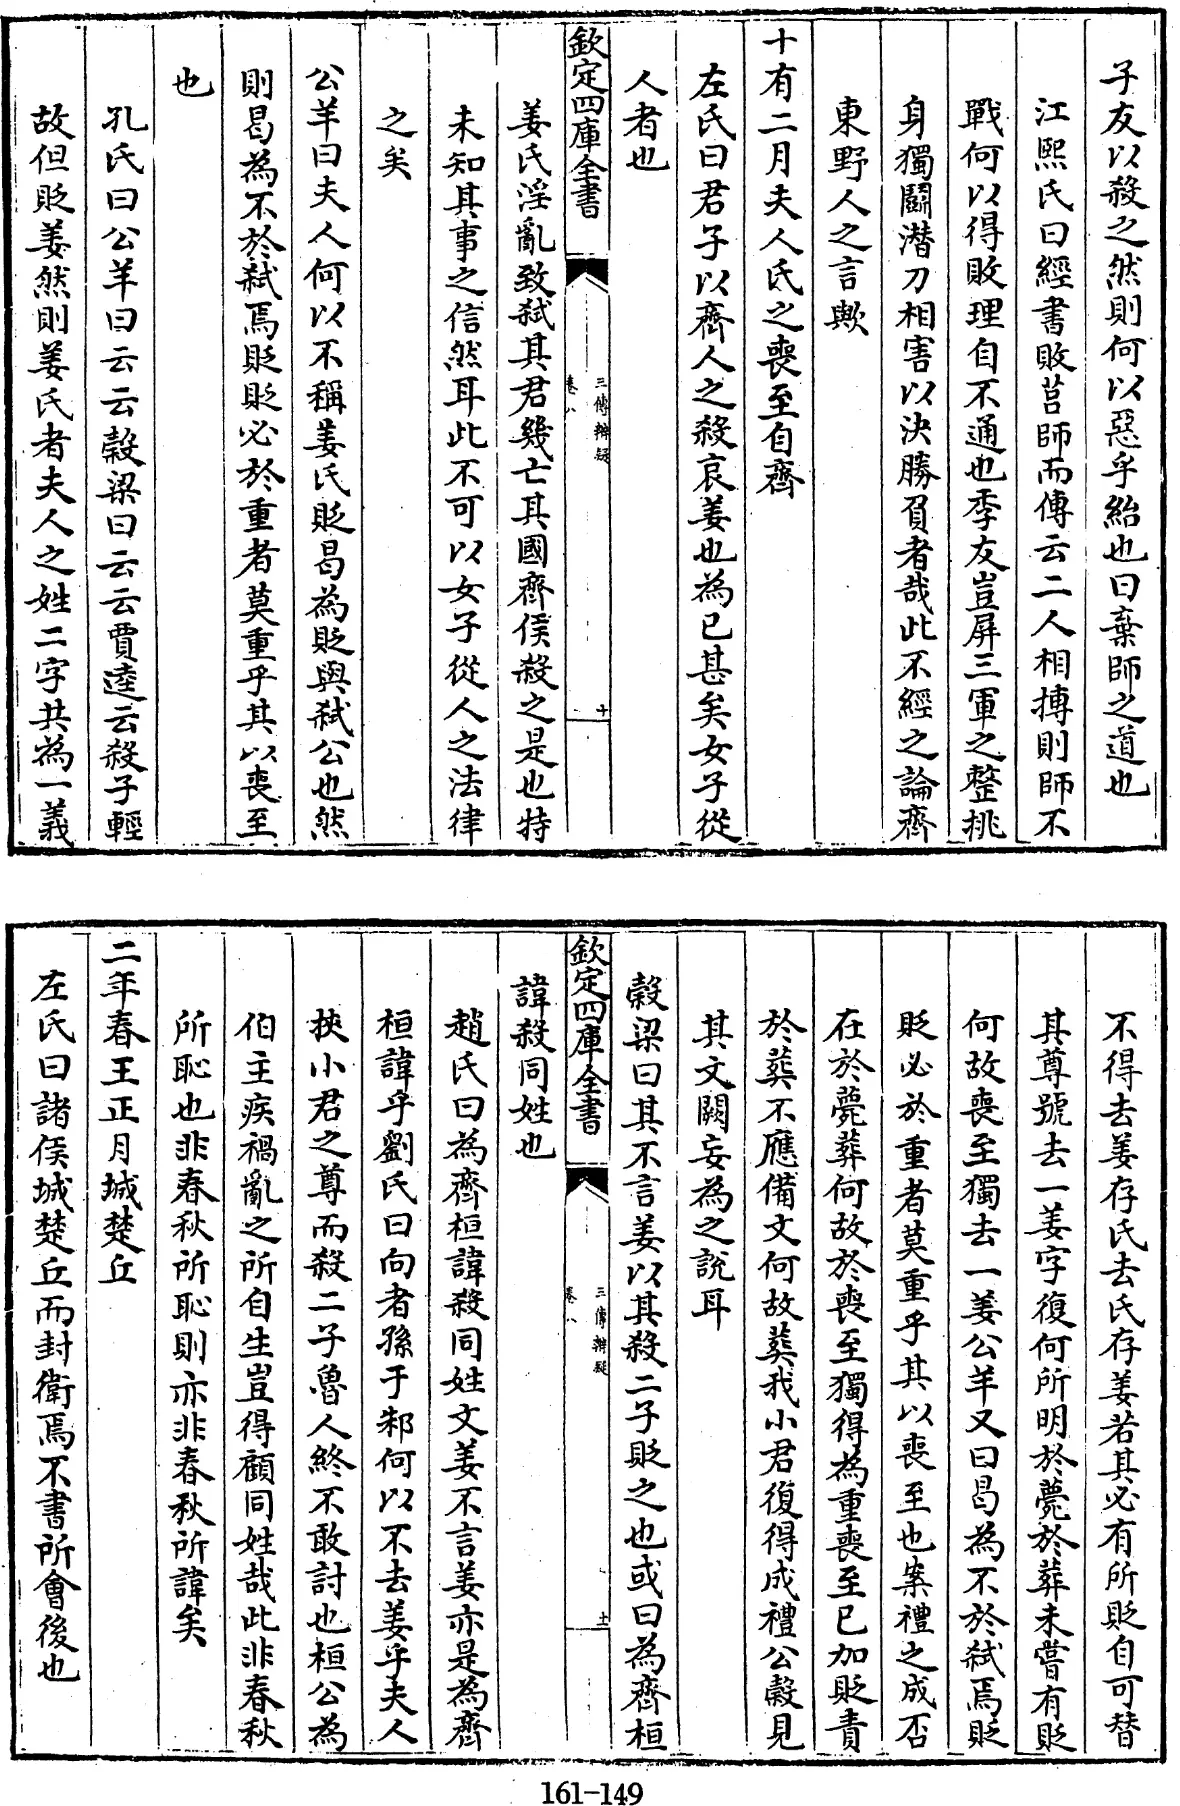 子友以殺之然則何以惡乎紿也曰棄師之道也
江熙氏曰經書敗莒師而傳云二人相摶則師不
戰何以得敗理自不通也季友豈屏三軍之整挑
身獨鬬潜刀相害以決勝負者哉此不經之論齊
東野人之言歟
十有二月夫人氏之喪至自齊
左氏曰君子以齊人之殺哀姜也為已甚矣女子從
人者也
欽定四庫全書
三傳辨疑
卷八
十
姜氏淫亂致弑其君幾亡其國齊侯殺之是也特
未知其事之信然耳此不可以女子從人之法律
之矣
公羊曰夫人何以不稱姜氏貶曷為貶與弑公也然
則曷為不於弑焉貶貶必於重者莫重乎其以喪至
也
孔氏曰公羊曰云云穀梁曰云云賈逵云殺子輕
故但貶姜然則姜氏者夫人之姓二字共為一義
不得去姜存氏去氏存姜若其必有所貶自可替
其尊號去一姜字復何所明於薨於葬未嘗有貶
何故喪至獨去一姜公羊又曰曷為不於弑焉貶
貶必於重者莫重乎其以喪至也案禮之成否
在於薨葬何故於喪至獨得為重喪至已加貶責
於葬不應備文何故葬我小君復得成禮公穀見
其文闕妄為之說耳
穀梁曰其不言姜以其殺二子貶之也或曰為齊桓
欽定四庫全書
三傳辨疑
卷八
土
諱殺同姓也
趙氏曰為齊桓諱殺同姓文姜不言姜亦是為齊
桓諱乎劉氏曰向者孫于邾何以不去姜乎夫人
挾小君之尊而殺二子魯人終不敢討也桓公為
伯主疾禍亂之所自生豈得顧同姓哉此非春秋
所恥也非春秋所恥則亦非春秋所諱矣
二年春王正月城楚丘
左氏曰諸侯城楚丘而封衛焉不書所會後也
161-149